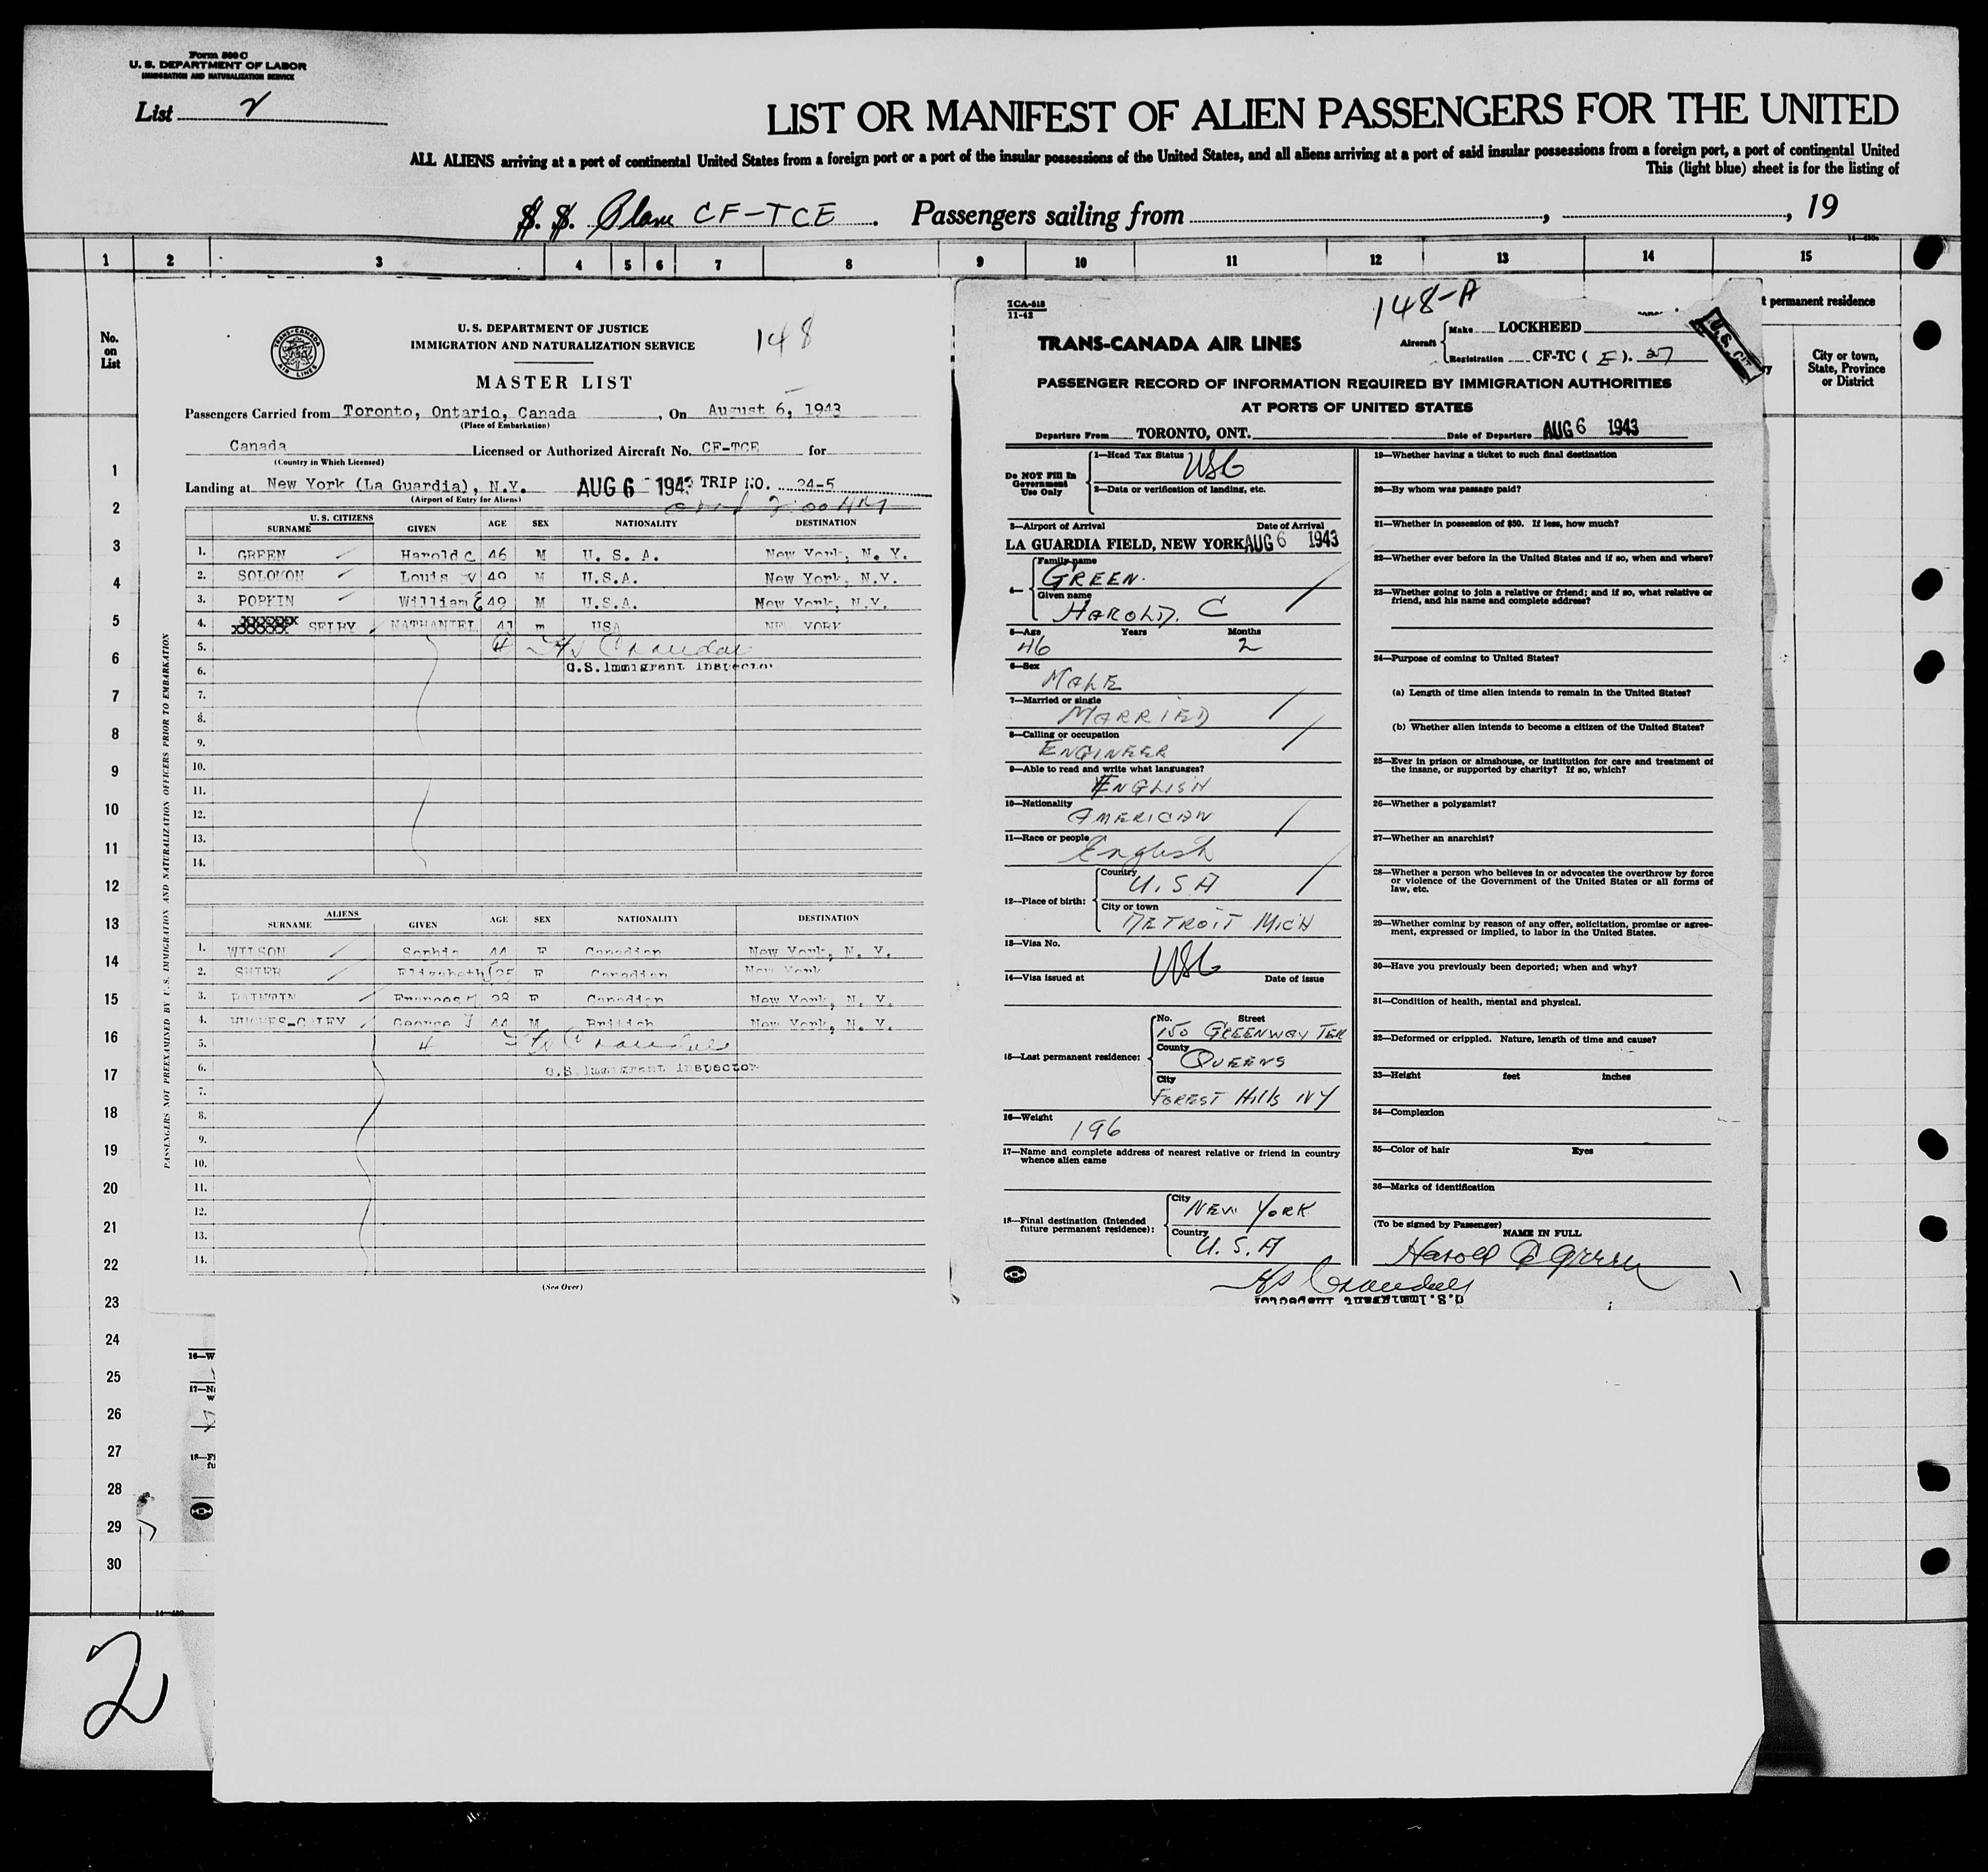 Form 500 C
U. S. DEPARTMENT OF LABOR
IMMIGRATION AND NATURALIZATION SERVICE
List 2
LIST OR MANIFEST OF ALIEN PASSENGERS FOR THE UNITED
ALL ALIENS arriving at a port of continental United States from a foreign port or a port of the insular possessions of the United States, and all aliens arriving at a port of said insular possessions from a foreign port, a port of continental United
This (light blue) sheet is for the listing of
S. S. Plane CF-TCE. Passengers sailing from , , 19
1 2 3 4 5 6 7 8 9 10 11 12 13 14 15
No. on List
t permanent residence
City or town, State, Province or District
1
2
3
4
5
6
7
8
9
10
11
12
13
14
15
16
17
18
19
20
21
22
23
24
25
26
27
28
29
30
TRANS-CANADA AIR LINES
U. S. DEPARTMENT OF JUSTICE
IMMIGRATION AND NATURALIZATION SERVICE
148
MASTER LIST
Passengers Carried from Toronto, Ontario, Canada, On August 6, 1943
(Place of Embarkation)
Canada Licensed or Authorized Aircraft No. CF-TCE for
(Country in Which Licensed)
Landing at New York (La Guardia), N.Y. AUG 6 1943 TRIP NO. 24-5
(Airport of Entry for Aliens)
U. S. CITIZENS
SURNAME GIVEN AGE SEX NATIONALITY DESTINATION
1. GREEN Harold C 46 M U. S. A. New York, N. Y.
2. SOLOMON Louis V 49 M U.S.A. New York, N.Y.
3. POPKIN William 49 M U.S.A. New York, N.Y.
4. SELBY NATHANIEL 41 m USA NEW YORK
5. 4
6. U.S. Immigrant Inspector
7.
8.
9.
10.
11.
12.
13.
14.
ALIENS
SURNAME GIVEN AGE SEX NATIONALITY DESTINATION
1. WILSON Sophie 44 F Canadian New York, N. Y.
2. SHIER Elizabeth 25 F Canadian New York
3. Frances 28 F Canadian New York, N. Y.
4. George J 44 M British New York, N. Y.
5. 4
6. U.S. Immigrant Inspector
7.
8.
9.
10.
11.
12.
13.
14.
(See Over)
PASSENGERS NOT PREEXAMINED BY U.S. IMMIGRATION AND NATURALIZATION OFFICERS PRIOR TO EMBARKATION
TCA-618
11-42
148-A
TRANS-CANADA AIR LINES
Aircraft Make LOCKHEED
Registration CF-TC (E). 27
PASSENGER RECORD OF INFORMATION REQUIRED BY IMMIGRATION AUTHORITIES
AT PORTS OF UNITED STATES
Departure From TORONTO, ONT. Date of Departure AUG 6 1943
Do NOT Fill In Government Use Only
1—Head Tax Status USC
2—Data or verification of landing, etc.
3—Airport of Arrival Date of Arrival
LA GUARDIA FIELD, NEW YORK AUG 6 1943
4— Family name GREEN.
Given name HAROLD. C
5—Age Years Months
46 2
6—Sex
MALE
7—Married or single
MARRIED
8—Calling or occupation
ENGINEER
9—Able to read and write what languages?
ENGLISH
10—Nationality
AMERICAN
11—Race or people
English
12—Place of birth: Country U. S A
City or town DETROIT MICH
13—Visa No. USC
14—Visa issued at Date of issue
15—Last permanent residence: No. Street
150 GREENWAY TER
County QUEENS
City FOREST Hills NY
16—Weight
196
17—Name and complete address of nearest relative or friend in country
whence alien came
18—Final destination (Intended future permanent residence):
City NEW YORK
Country U. S. A
19—Whether having a ticket to such final destination
20—By whom was passage paid?
21—Whether in possession of $50. If less, how much?
22—Whether ever before in the United States and if so, when and where?
23—Whether going to join a relative or friend; and if so, what relative or
friend, and his name and complete address?
24—Purpose of coming to United States?
(a) Length of time alien intends to remain in the United States?
(b) Whether alien intends to become a citizen of the United States?
25—Ever in prison or almshouse, or institution for care and treatment of
the insane, or supported by charity? If so, which?
26—Whether a polygamist?
27—Whether an anarchist?
28—Whether a person who believes in or advocates the overthrow by force
or violence of the Government of the United States or all forms of
law, etc.
29—Whether coming by reason of any offer, solicitation, promise or agree-
ment, expressed or implied, to labor in the United States.
30—Have you previously been deported; when and why?
31—Condition of health, mental and physical.
32—Deformed or crippled. Nature, length of time and cause?
33—Height feet inches
34—Complexion
35—Color of hair Eyes
36—Marks of identification
(To be signed by Passenger) NAME IN FULL
Harold C Green
U.S. Immigrant Inspector
16—W
17—N
w
18—F
fu
2